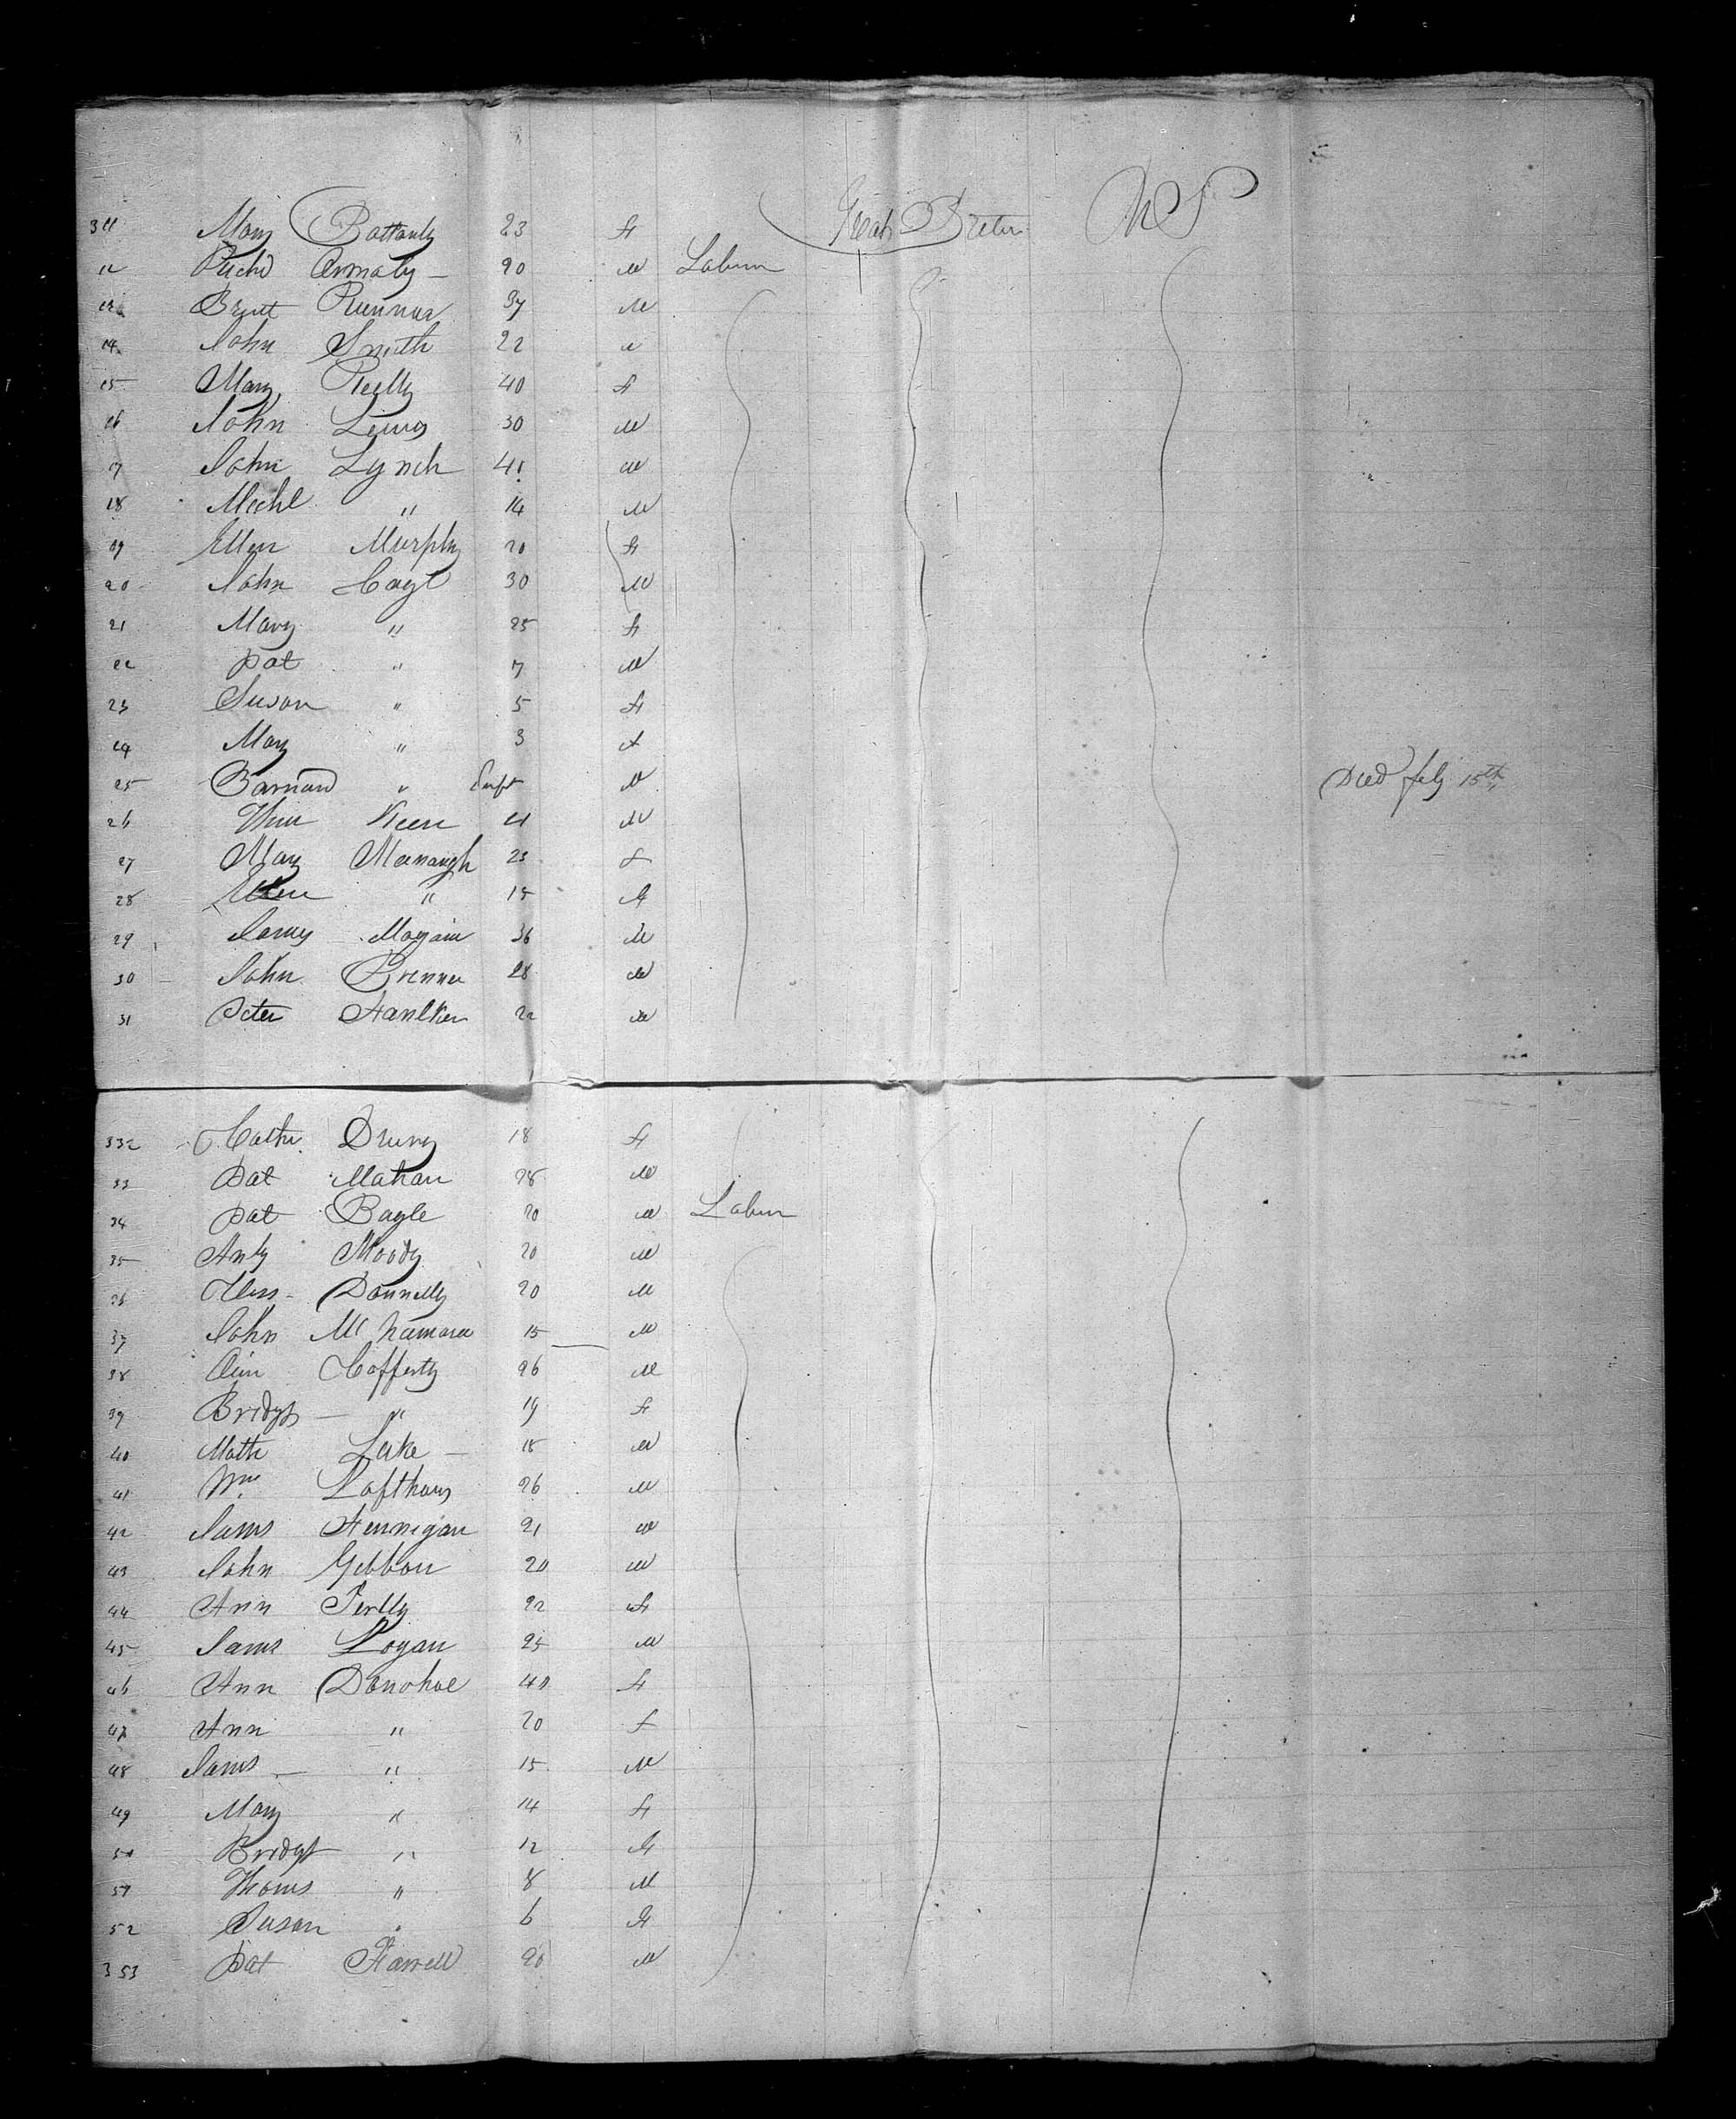 311 Mary Battanly 23 F Great Britn US
12 Richd Ormsby 20 M Laburn
13 Brnt Runnur 37 M
14 John Smith 22 M
15 Mary Reilly 40 F
16 John Lewis 30 M
17 John Lynch 41 M
18 Michl " 14 M
19 Ellen Murphy 20 F
20 John 30 M
21 Mary " 25 F
22 Pat " 7 M
23 Susan " 5 F
24 Mary " 3 F
25 Barnard " Inft M Died July 15th
26 Thos Keen 21 M
27 Mary 23 F
28 Ellen " 15 F
29 James 36 M
30 John Brennen 28 M
31 Peter 22 M
332 Cathe. Drury 18 F
33 Pat Mahan 28 M
34 Pat Bayle 20 M Labur
35 Anty Moody 20 M
36 Donnelly 20 M
37 John McNamara 15 M
38 Cafferty 26 M
39 Bridgt " 19 F
40 Mathe Luke 18 M
41 Wm Lofthaus 26 M
42 James Hennigan 21 M
43 John Gibbon 20 M
44 Ann 22 F
45 James Logan 25 M
46 Ann Donohoe 40 F
47 Ann " 20 F
48 James " 15 M
49 Mary " 14 F
50 Bridgt " 12 F
51 Thoms " 8 M
52 Susan " 6 F
353 Pat Farrell 20 M